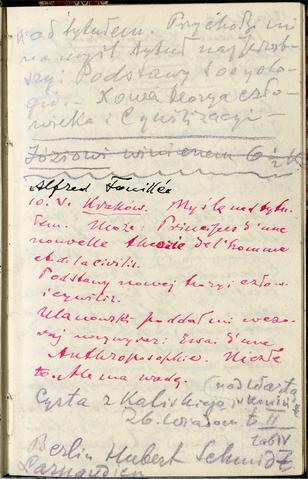 nad tytułem. Przychodzi mi
na myśl tytuł najlep
szy: Podstawy socyolo
gii. – Nowa teorya czło
wieka i cywilizacyi –
Józiowi winienem 6 ½ K
Alfred Fouillée
10. V. Kraków. Myślę nad tytu
łem. Może: Principes d'une
nouvelle théorie de l'homme
et de la civilis.
Podstawy nowej teoryi człow
i cywiliz.
Ulanowski poddał mi wczo
raj nazwę: Essai d'une
Anthroposophie. Nieźle
to. Ale ma wadę.
(nad Wartą
Cysta z Kaliskiego
26.
Berlin Hubert Schmidt